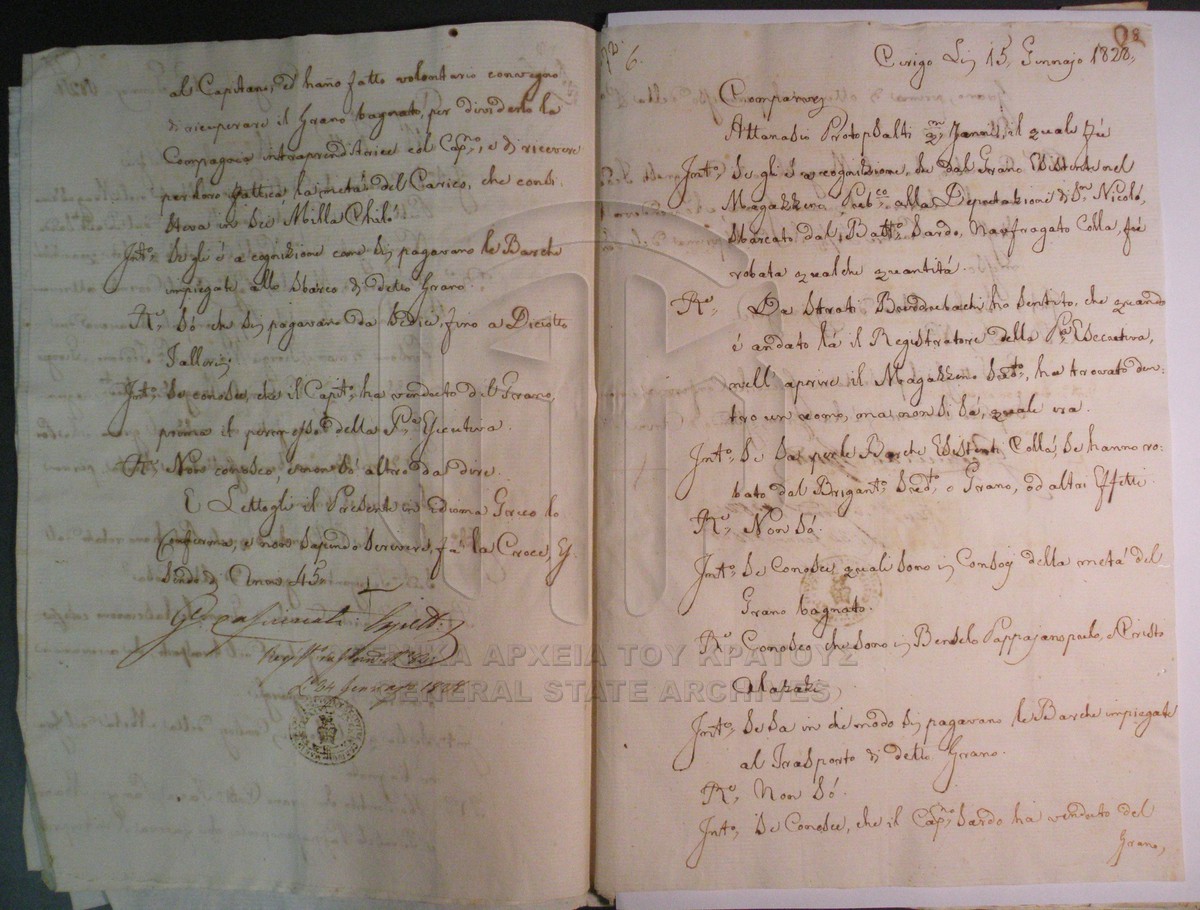 al Capitano, e hano fatto volontario convegno
di ricuperare il Grano bagnato, per dividerlo la
Compagnia intraprenditrice col Cap.no, e di ricevere
per loro fattica la metà del Carico, che consi-
steva in Sei Milla Chilò
Int.o Se gli è a cognizione come si pagavano le Barche
impiegate allo sbarco di detto Grano.
R.e Sò che si pagavano da Sedici, fino a Diciotto
Tallari.
Int.o Se conosce, che il Capit.o ha venduto del Grano,
prima il permesso della P.a Esecutiva.
R.e Non conosco, e non sò altro da dire.
E Lettogli il Presente in Idioma Greco lo
Conferma, e non sapendo scrivere, fà la Croce, Es-
sendo di Anni 45.
1828
6.
Cerigo Li 15 Gennajo 1828
Comparve
Attanasio Protopsalti q.m Janni, il quale fù
Int.o Se gli è a cognizione, che dal Grano Esistente nel
Magazzeno Pub.co alla Deputazione di S.n Nicolò,
sbarcato dal Batt.o Sardo, Naufragato Colla, fù
robata qualche quantità.
R.e Da Strati ha sentito, che quando
è andato là il Registratore della P.a Esecutiva,
nell' aprire il Magazzeno Sud.to, ha trovato den-
tro un uomo, ma non si sà, quale era.
Int.o Se sa, per le Barche Esistenti Collà, se hanno ro-
bato dal Brigant.o Sud.to, o Grano, od altri Effetti.
R.e Non Sò.
Int.o Se Conosce, quali sono i Consoci della metà del
Grano bagnato.
R.e Conosco che sono i Pappajanopulo, e Cristo
Calazaki
Int.o Se sa in che modo si pagavano le Barche impiegate
al Trasporto di detto Grano.
R.e Non Sò.
Int.o Se Conosce, che il Cap.no Sardo ha venduto del
Grano,
ΓΕΝΙΚΑ ΑΡΧΕΙΑ ΤΟΥ ΚΡΑΤΟΥΣ
GENERAL STATE ARCHIVES